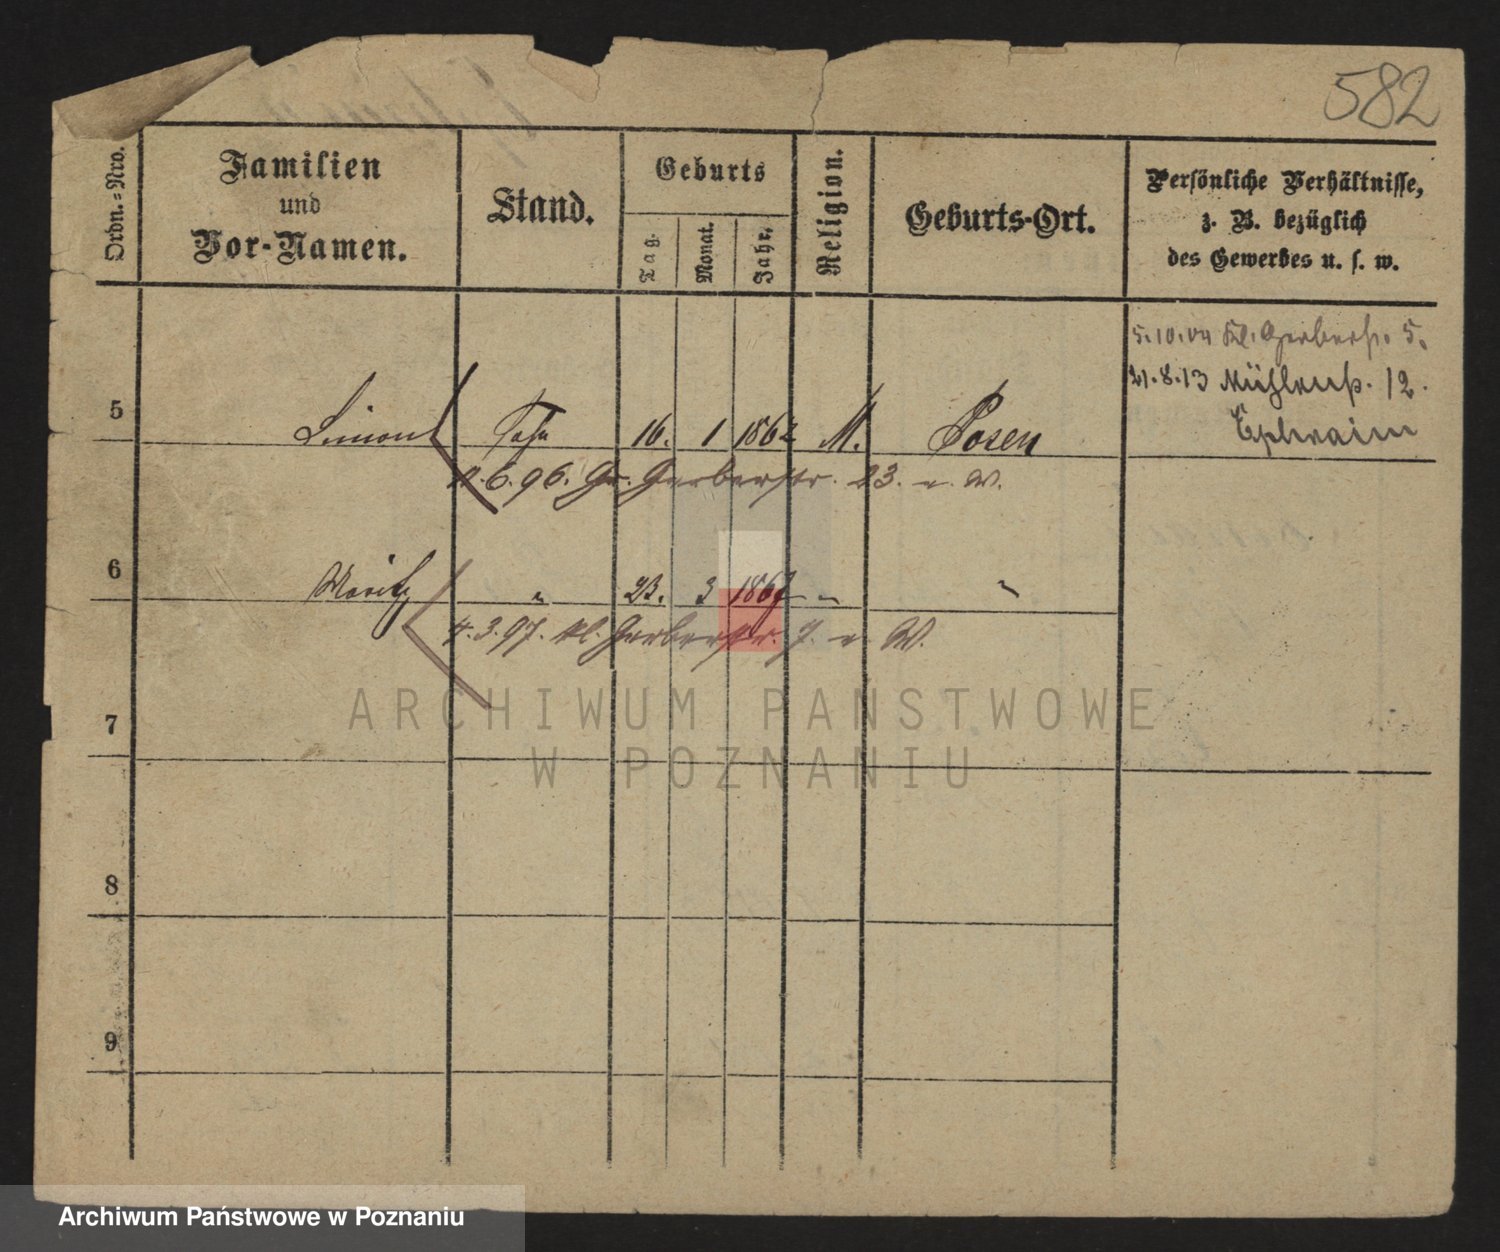 582
Ordn.-Nro.
Familien
und
Vor-Namen.
Stand.
Geburts
Tag.
Monat.
Jahr.
Religion.
Geburts-Ort.
Persönliche Verhältnisse,
z. B. bezüglich
des Gewerbes u. s. w.
5.10.04 Kl. Gerberstr. 5.
21.8.13 Mühlenstr. 12.
Ephraim
5 Simon Sohn 16. 1 1862 M. Posen
6.96. Gr. Gerberstr. 23. W.
6 Moritz " 23. 3 1867 " "
4.3.97. kl. Gerberstr. 7. W.
7
8
9
ARCHIWUM PAŃSTWOWE
W POZNANIU
Archiwum Państwowe w Poznaniu